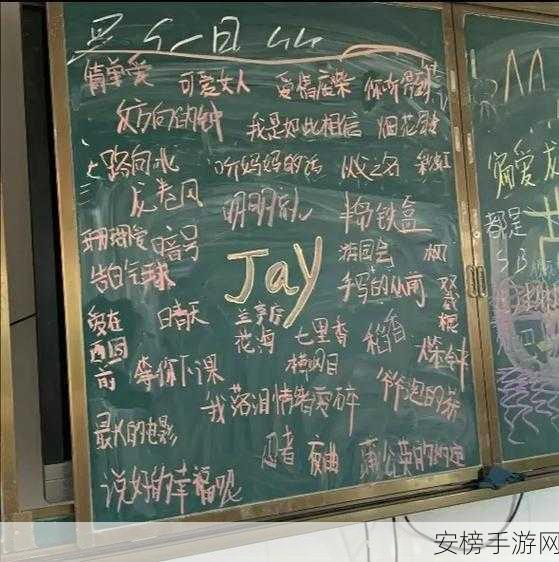 简单爱 可爱女人 爱情废柴 你听得到
反方向的钟 我是如此相信 烟花易冷
一路向北 听妈妈的话 以父之名 彩虹
龙卷风 明明就 半岛铁盒
珊瑚海 暗号 游园会 枫
告白气球 Jay 手写的从前 双截棍
爱在西元前 白色 晴天 兰亭序 花海 七里香 稻香 爆米花
等你下课 横网目
我落泪情绪零碎 爷爷泡的茶
最伟大的电影 忍者 夜曲 蒲公英的约定
说好的幸福呢
偏爱
都是
SB
安榜手游网